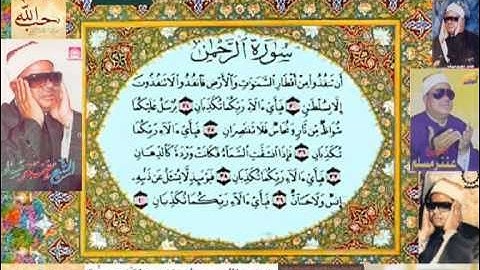 سورة الرحمن
أَن تَنفُذُوا۟ مِنْ أَقْطَارِ ٱلسَّمَـٰوَٰتِ وَٱلْأَرْضِ فَٱنفُذُوا۟ لَا تَنفُذُونَ
إِلَّا بِسُلْطَـٰنٍ ٣٣ فَبِأَىِّ ءَالَآءِ رَبِّكُمَا تُكَذِّبَانِ ٣٤ يُرْسَلُ عَلَيْكُمَا
شُوَاظٌ مِّن نَّارٍ وَنُحَاسٌ فَلَا تَنتَصِرَانِ ٣٥ فَبِأَىِّ ءَالَآءِ رَبِّكُمَا
تُكَذِّبَانِ ٣٦ فَإِذَا ٱنشَقَّتِ ٱلسَّمَآءُ فَكَانَتْ وَرْدَةً كَٱلدِّهَانِ
٣٧ فَبِأَىِّ ءَالَآءِ رَبِّكُمَا تُكَذِّبَانِ ٣٨ فَيَوْمَئِذٍ لَّا يُسْـَٔلُ عَن ذَنۢبِهِۦٓ
إِنسٌ وَلَا جَآنٌّ ٣٩ فَبِأَىِّ ءَالَآءِ رَبِّكُمَا تُكَذِّبَانِ ٤٠